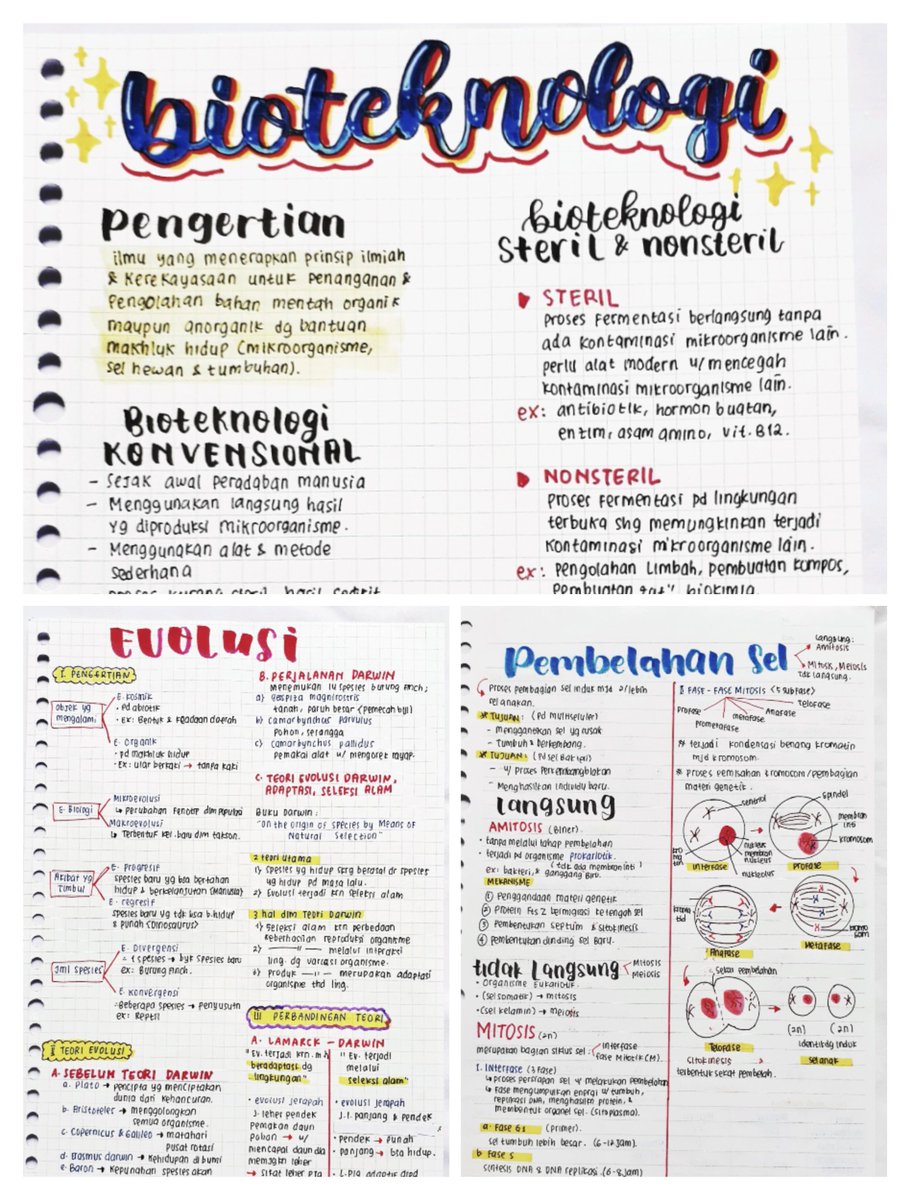 bioteknologi
Pengertian
ilmu yang menerapkan prinsip ilmiah
& kerekayasaan untuk penanganan &
pengolahan bahan mentah organik
maupun anorganik dg bantuan
makhluk hidup (mikroorganisme,
sel hewan & tumbuhan).
Bioteknologi
KONVENSIONAL
- Sejak awal peradaban manusia
- Menggunakan langsung hasil
yg diproduksi mikroorganisme.
- Menggunakan alat & metode
sederhana
bioteknologi
steril & nonsteril
STERIL
proses fermentasi berlangsung tanpa
ada kontaminasi mikroorganisme lain.
perlu alat modern u/ mencegah
kontaminasi mikroorganisme lain.
ex: antibiotik, hormon buatan,
enzim, asam amino, vit. B12.
NONSTERIL
proses fermentasi pd lingkungan
terbuka shg memungkinkan terjadi
kontaminasi mikroorganisme lain.
ex: pengolahan limbah, pembuatan kompos,
EVOLUSI
I. PENGERTIAN
objek yg
mengalami
E. kosmik
• pd abiotik
• Ex: Bentuk & keadaan daerah
E. Organik
• pd makhluk hidup
• Ex: ular berkaki → tanpa kaki
E. Biologi
Mikroevolusi
↳ perubahan fenotip dlm populasi
Makroevolusi
↳ Terbentuk kel. baru dlm takson.
Akibat yg
timbul
E. Progresif
spesies baru yg bsa bertahan
hidup & berkelanjutan (Manusia)
E. regresif
spesies baru yg tdk bsa b.hidup
& punah (Dinosaurus)
Jml spesies
E. Divergensi
= 1 spesies → byk spesies baru
ex: Burung finch.
E. Konvergensi
Beberapa spesies → penyusutn
ex: Reptil
II TEORI EVOLUSI
A. SEBELUM TEORI DARWIN
a. Plato → pencipta yg menciptakan
dunia dari kehancuran.
b. Aristoteles → menggolongkan
semua organisme.
c. Copernicus & Galileo → matahari
pusat rotasi
d. Erasmus darwin → kehidupan di bumi
e. Baron → kepunahan spesies akan
B. PERJALANAN DARWIN
menemukan 14 spesies burung finch;
a) geospiza magnirostris
tanah, paruh besar (pemecah biji)
b) camarhynchus parvulus
pohon, serangga
c) camarhynchus pallidus
pemakai alat u/ mengorek rayap.
C. TEORI EVOLUSI DARWIN,
ADAPTASI, SELEKSI ALAM
Buku Darwin:
"On the origin of species by Means of
Natural Selection"
2 teori utama
1) spesies yg hidup skrg berasal dr spesies
yg hidup pd masa lalu.
2) Evolusi terjadi krn seleksi alam
3 hal dlm Teori Darwin
1) seleksi alam krn perbedaan
keberhasilan reproduksi organisme
2) —"— melalui interaksi
ling. dg variasi organisme.
3) Produk —"— merupakan adaptasi
organisme thd ling.
III PERBANDINGAN TEORI
A. LAMARCK - DARWIN
"Ev. terjadi krn. m.h
beradaptasi dg
lingkungan"
• evolusi jerapah
J. leher pendek
pemakan daun
pohon → u/
mencapai daun dia
"Ev. terjadi
melalui
seleksi alam"
• evolusi jerapah
J. l. panjang & pendek
• pendek → punah
• panjang → bta hidup.
Pembelahan Sel
Langsung:
Amitosis
Mitosis, Meiosis
Tdk langsung.
proses pembagian sel induk mjd 2/lebih
sel anakan.
TUJUAN: (Pd Multiseluler)
- menggantikan sel yg rusak
- Tumbuh & berkembang.
TUJUAN: (Pd sel bakteri)
- u/ proses perkembangbiakan
- Menghasilkan individu baru.
Langsung
AMITOSIS (Biner).
• tanpa melalui tahap pembelahan
• terjadi pd organisme prokariotik.
(tdk ada membran inti)
ex: bakteri, & ganggang biru.
MEKANISME
1 Penggandaan materi genetik
2 Protein Fts Z bermigrasi ke tengah sel
3 Pembentukan septum & sitokinesis
4 pembentukan dinding sel baru.
tidak Langsung
Mitosis
Meiosis
• Organisme Eukariotik.
• (sel somatik) → mitosis
• (sel kelamin) → meiosis
MITOSIS (2n)
merupakan bagian siklus sel
Interfase
Fase Mitotik (M).
1. Interfase (3 Fase)
↳ proses persiapan sel u/ melakukan pembelahan
↳ Fase mengumpulkan energi u/ tumbuh,
replikasi DNA, menghasilkn protein, &
membentuk organel sel. (Sitoplasma).
a. Fase G1 (primer).
sel tumbuh lebih besar. (6-12 jam).
b Fase S
sintesis DNA & DNA replikasi. (6-8 jam)
II FASE - FASE MITOSIS (5 subfase)
Profase
Prometafase
metafase
Anafase
Telofase
terjadi kondensasi benang kromatin
mjd kromosom.
* proses pemisahan kromosom/pembagian
materi genetik.
sentriol
nukleus
membran
nukleus
nukleolus
kro
ma
tin
Interfase
spindel
membran
inti
kromosom
Profase
kroma
tid
Anafase
kromo
som
Metafase
Sekat pembelahan
Telofase
(2n)
(2n)
Identik dg induk
sel anak
Sitokinesis
terbentuk sekat pembelah.